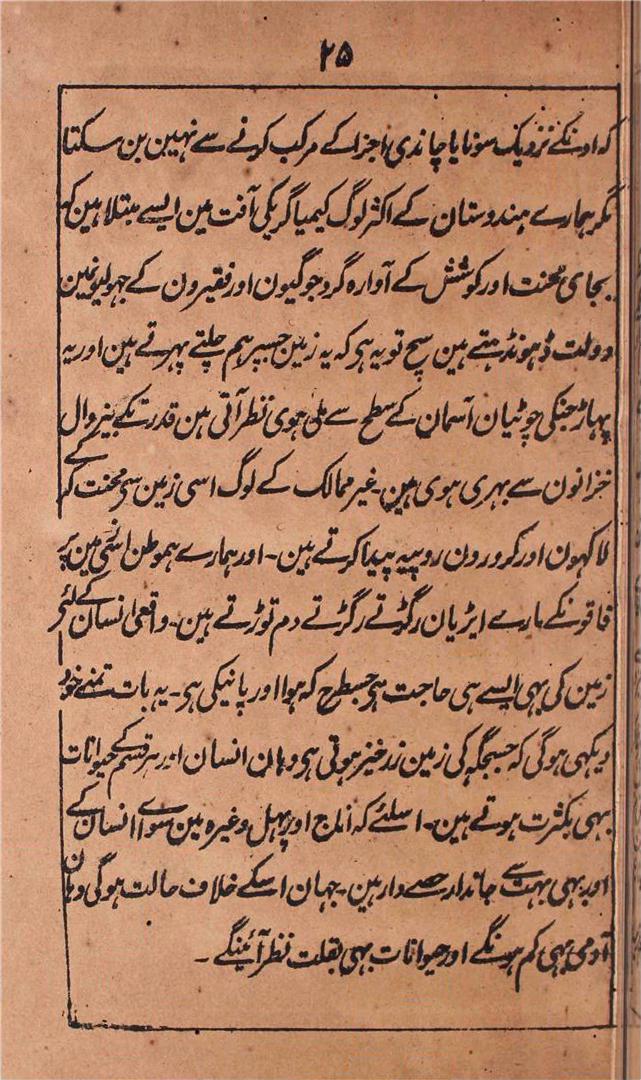 ۲۵
کہ اونکے نزدیک سونا یا چاندی اجزا کے مرکب کرنے سے نہین بن سکتا
مگر ہمارے ہندوستان کے اکثر لوگ کیمیاگریکی آفت مین ایسے مبتلا ہین کہ
بجای محنت اور کوشش کے آوارہ گرد جوگیون اور فقیرون کے جہولیونمین
دولت ڈہونڈہتے ہین سچ تو یہ ہی کہ یہ زمین جسپر ہم چلتے پہرتے ہین اور یہ
پہاڑ جنکی چوٹیان آسمان کے سطح سے ملی ہوی نظر آتی ہین قدرتکے بیزوال
خزانون سے بہری ہوی ہین۔ غیر ممالک کے لوگ اسی زمین سی محنت کرکے
لاکہون اور کرورون روپیہ پیدا کرتے ہین۔ اور ہمارے ہموطن اسی مین پر
فاقونکے مارے ایڑیان رگڑتے رگڑتے دم توڑتے ہین۔ واقعی انسان کے لئے
زمین کی بہی ایسے ہی حاجت ہی جسطرح کہ ہوا اور پانیکی ہی۔ یہ بات تمنے خود
دیکہی ہوگی کہ جسجگہ کی زمین زرخیز ہوتی ہی وہان انسان اور ہر قسم کے حیوانات
بہی بکثرت ہوتے ہین۔ اسلئے کہ اناج اور پہل وغیرہ مین سواے انسان کے
اور بہی بہت سے جاندار حصے دار ہین۔ جہان اسکے خلاف حالت ہوگی وہان
آدمی بہی کم ہونگے اور حیوانات بہی بقلت نظر آئینگے۔